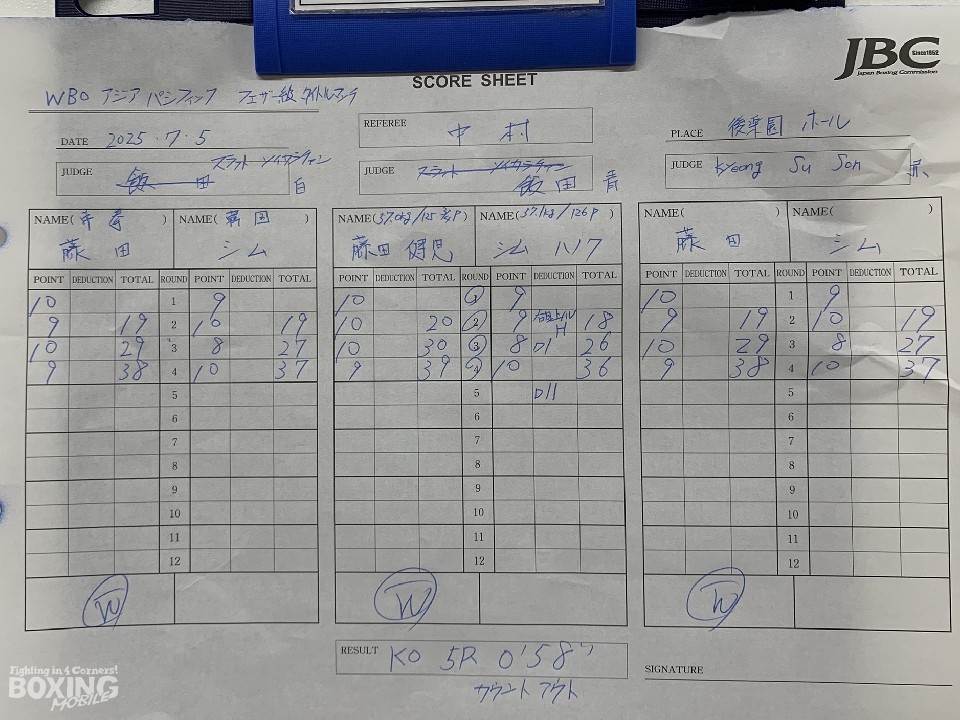 JBC Since1952
Japan Boxing Commission
SCORE SHEET
WBO アジア パシフィック フェザー級 タイトルマッチ
DATE 2025・7・5
REFEREE 中村
PLACE 後楽園 ホール
JUDGE 飯田 スラット ソイカラチャン 白
JUDGE スラット ソイカラチャン 飯田 青
JUDGE Kyeong Su Son 赤
NAME( 帝拳 ) NAME( 韓国 )
藤田 シム
NAME( NAME(
藤田 健児 シム ハノク
NAME( ) NAME( )
藤田 シム
POINT DEDUCTION TOTAL ROUND POINT DEDUCTION TOTAL
10 1 9
9 19 2 10 19
10 29 3 8 27
9 38 4 10 37
5
6
7
8
9
10
11
12
W
POINT DEDUCTION TOTAL ROUND POINT DEDUCTION TOTAL
10 1 9
10 20 2 9 18
10 30 3 8 D1 26
9 39 4 10 36
5 D11
6
7
8
9
10
11
12
W
POINT DEDUCTION TOTAL ROUND POINT DEDUCTION TOTAL
10 1 9
9 19 2 10 19
10 29 3 8 27
9 38 4 10 37
5
6
7
8
9
10
11
12
W
RESULT KO 5R 0'58"
カウント アウト
SIGNATURE
Fighting in 4 Corners!
BOXING
MOBILE